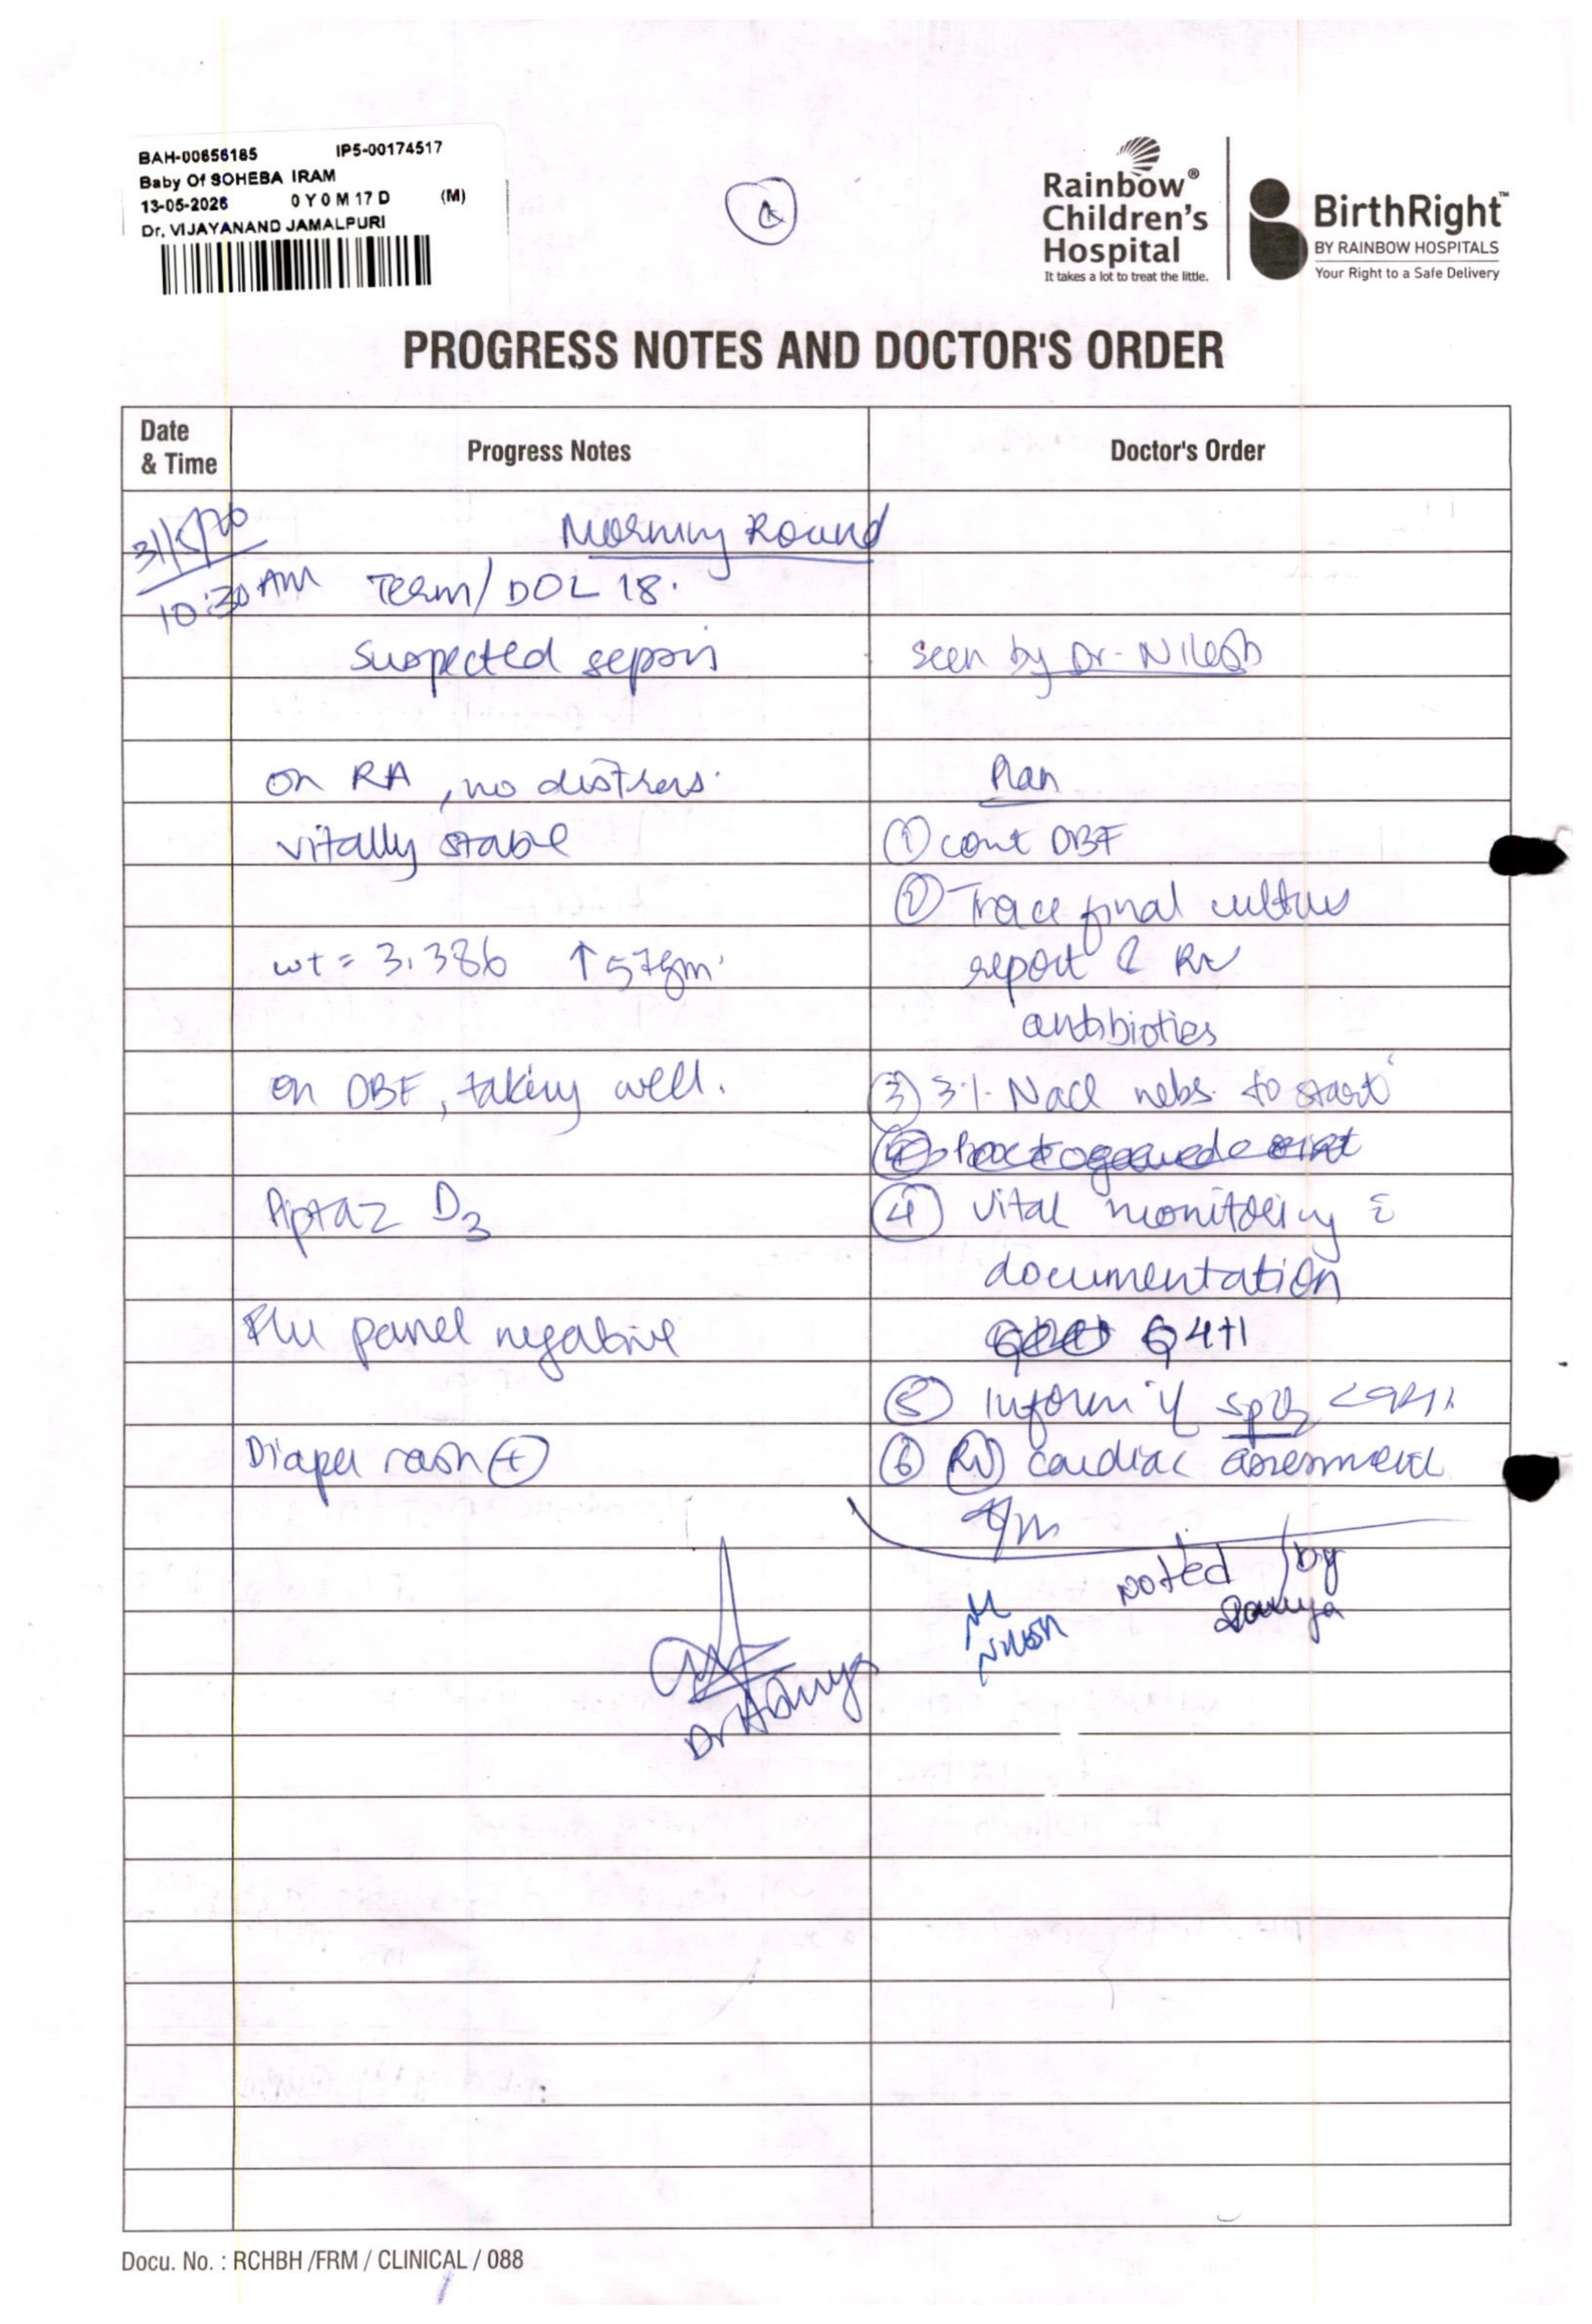 BAH-00656185 IP5-00174517
Baby Of SOHEBA IRAM
13-05-2026 0 Y 0 M 17 D (M)
Dr. VIJAYANAND JAMALPURI
Rainbow®
Children's
Hospital
It takes a lot to treat the little.
BirthRight™
BY RAINBOW HOSPITALS
Your Right to a Safe Delivery
PROGRESS NOTES AND DOCTOR'S ORDER
Date & Time Progress Notes Doctor's Order
Morning Round
10:30 AM Term/DOL 18.
Suspected sepsis seen by Dr. Nilesh
on RA, no distress. Plan
vitally stable ① cont DBF
② Trace final culture
wt = 3.386 ↑57gm. report & RV
antibiotics
on DBF, taking well. ③ 3% Nacl nebs. to start
Piptaz D3 ④ vital monitoring c̄
documentation
Flu panel negative Q4H
⑤ Inform if spO2
Diaper rash ⊕ ⑥ RV cardiac assessment
noted by
Nilesh
Docu. No. : RCHBH /FRM / CLINICAL / 088